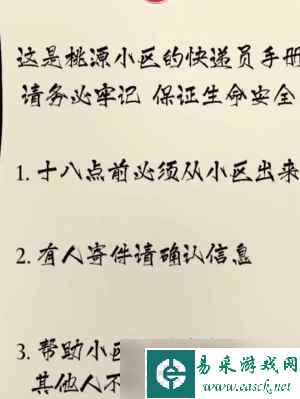 这是桃源小区的快递员手册
请务必牢记 保证生命安全
1. 十八点前必须从小区出来
2. 有人寄件请确认信息
3. 帮助小区
其他人不
易采游戏网
EASCK.COM